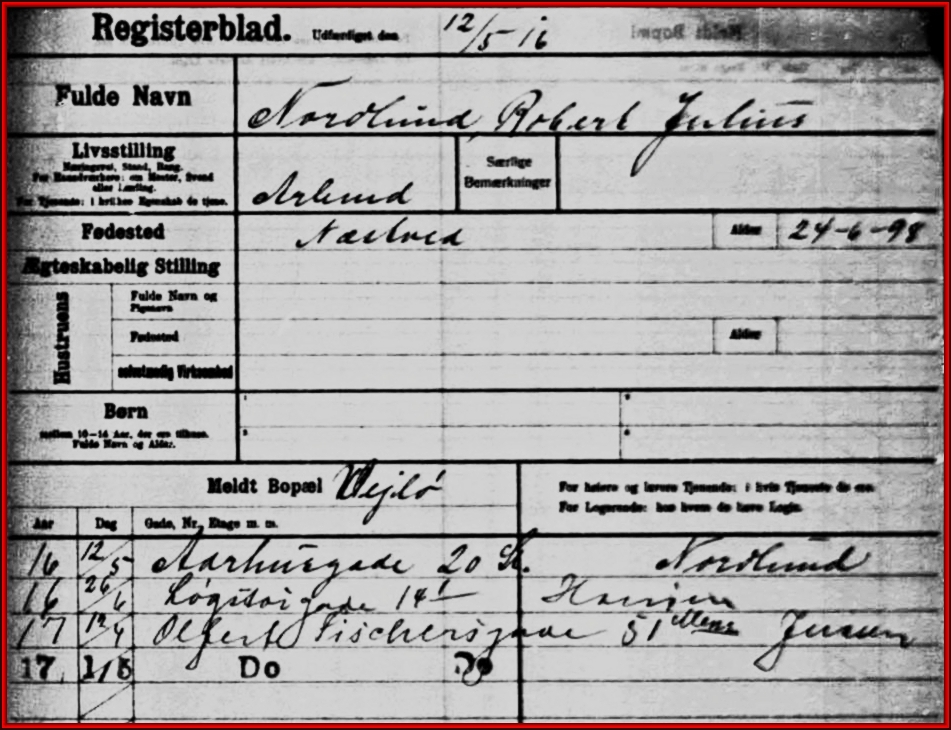 Registerblad. Udfærdiget den 12/5 16
Fulde Navn Nordlund, Robert Julius
Livsstilling
Næringsvei, Stand, Rang.
For Haandværkere: om Mester, Svend
eller Lærling.
For Tjenende: i hvilken Egenskab de tjene.
Arbmd
Særlige
Bemærkninger
Fødested Næstved Alder 24-6-98
Ægteskabelig Stilling
Hustruens
Fulde Navn og
Pigenavn
Fødested Alder
selvstændig Virksomhed
Børn
mellem 10-16 Aar, der ere tilhuse.
Fulde Navn og Alder.
1 2
3 4
Meldt Bopæl Vejlø
For højere og lavere Tjenende: i hvis Tjeneste de ere.
For Logerende: hos hvem de have Logis.
Aar Dag Gade, Nr., Etage m. m.
16 12/5 Aarhusgade 20 St. Nordlund
16 26/6 Løgstørgade 14 1 Hansen
17 12/4 Olfert Fischersgade 51 Jensen
17. 1/5 Do Do